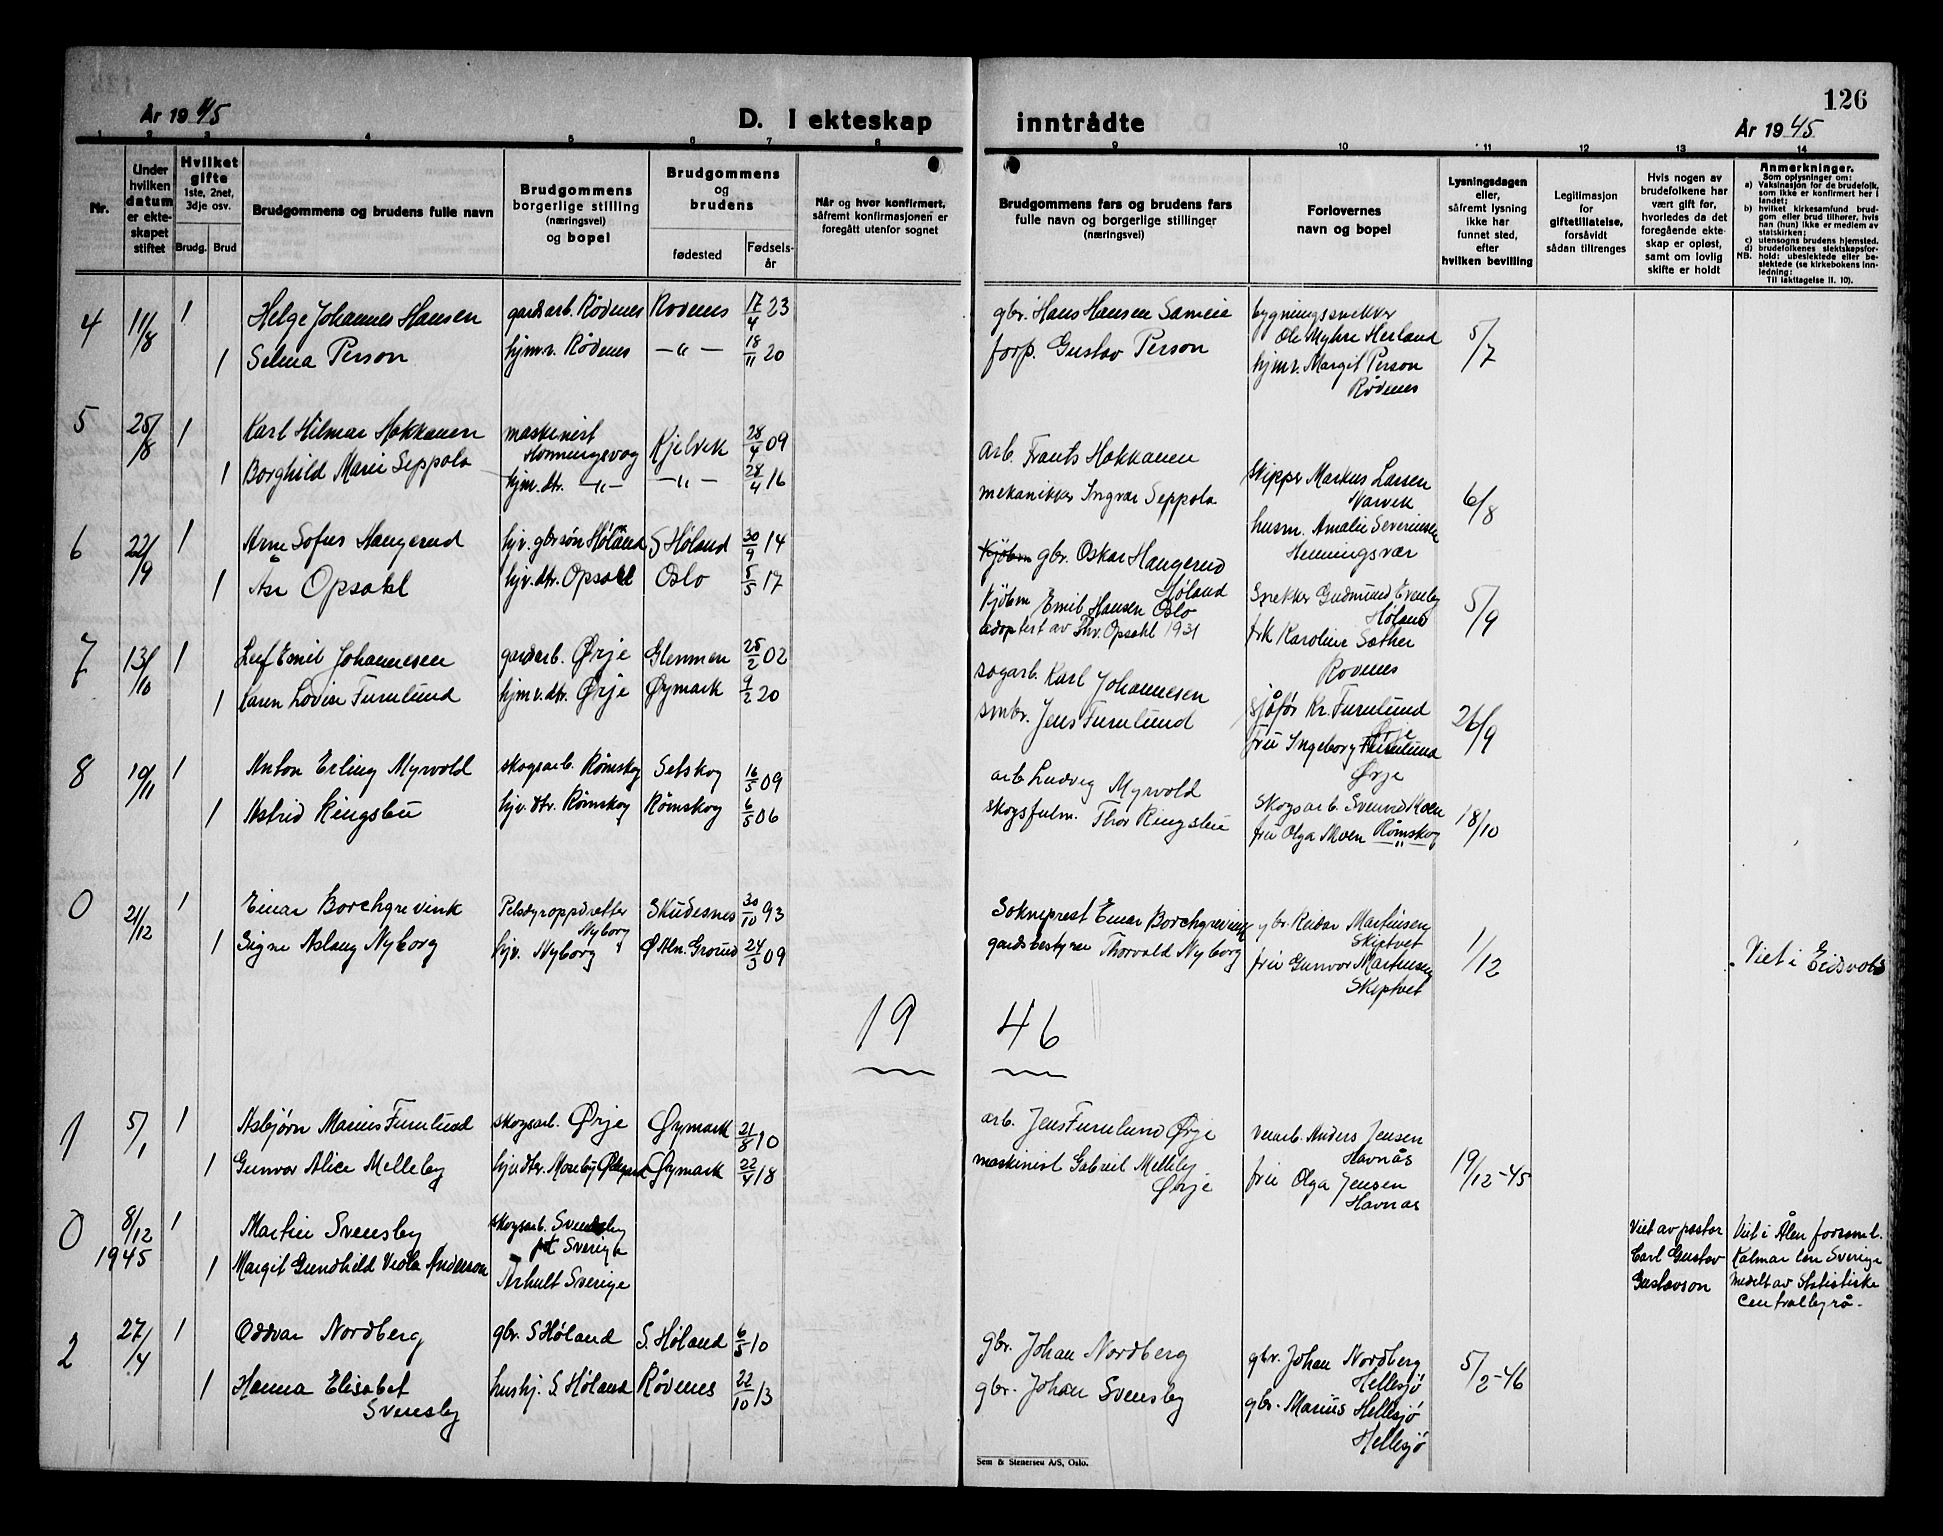 126
År 1945
D. I ekteskap inntrådte
År 1945
1 2 3 4 5 6 7 8 9 10 11 12 13 14
Nr.
Under
hvilken
datum
er ekte-
skapet
stiftet
Hvilket
gifte
1ste, 2net,
3dje osv.
Brudg. Brud
Brudgommens og brudens fulle navn
Brudgommens
borgerlige stilling
(næringsvei)
og bopel
Brudgommens
og
brudens
fødested
Fødsels-
år
Når og hvor konfirmert,
såfremt konfirmasjonen er
foregått utenfor sognet
Brudgommens fars og brudens fars
fulle navn og borgerlige stillinger
(næringsvei)
Forlovernes
navn og bopel
Lysningsdagen
eller,
såfremt lysning
ikke har
funnet sted,
efter
hvilken bevilling
Legitimasjon
for
giftetillatelse,
forsåvidt
sådan tiltrenges
Hvis nogen av
brudefolkene har
vært gift før,
hvorledes da det
foregående ekte-
skap er opløst,
samt om lovlig
skifte er holdt
Anmerkninger.
Som oplysninger om:
a) Vaksinasjon for de brudefolk,
som ikke er konfirmert her i
landet;
b) hvilket kirkesamfund brud-
gom eller brud tilhører, hvis
han (hun) ikke er medlem av
statskirken;
c) utensogns brudens hjemsted.
d) brudefolkenes slektskapsfor-
NB. hold: ubeslektede eller be-
slektede (se kirkebokens inn-
ledning;
Til iakttagelse II. 10).
4 11/8 1 Helge Johannes Hansen gardsarb. Rødenes Rødenes 17/4 23 gbr. Hans Hansen Sameie bygningssnekker
Ole Myhre Herland 5/7
1 Selma Person hjmv. Rødenes —"— 18/11 20 forp. Gustav Person hjmv. Margit Person
Rødenes
5 25/8 1 Karl Hilmar Hakkanen maskinist
Honningsvog Kjelvik 28/4 09 arb. Frants Hakkanen skipper Markus Larsen
Narvik 6/8
1 Borghild Marie Seppola hjm. dtr. —"— —"— 28/4 16 mekanikker Ingvar Seppola husm. Amalie Severinsen
Henningsvær
6 22/9 1 Arne Sofus Haugerud hjv. gbrsøn Høland S Høland 30/9 14 gbr. Oskar Haugerud
Høland Snekker Gudmund Evenby
Høland 5/9
1 Åse Opsahl hjv. dtr. Opsahl Oslo 5/5 17 Kjøbm Emil Hansen Oslo
adoptert av Thv. Opsahl 1931 frk Karoline Sæther
Rødenes
7 13/10 1 Leif Emil Johannesen gardsarb. Ørje Glemmen 25/2 02 sagarb. Karl Johannesen sjåfør Kr. Furulund
Ørje 26/9
1 Karen Lovise Furulund hjmv. dtr. Ørje Øymark 9/2 20 smbr. Jens Furulund fru Ingeborg Furulund
Ørje
8 10/11 1 Anton Erling Myrvold skogsarb. Rømskog Setskog 16/5 09 arb Ludvig Myrvold Skogsarb. Svenvid Moen 18/10
1 Astrid Ringsbu hjv. dtr. Rømskog Rømskog 6/5 06 skogsfulm. Thor Ringsbu fru Olga Moen Rømskog
0 21/12 1 Einar Borchgrevink Pelsdyroppdretter
Nyborg Skudesnes 30/10 93 Sokneprest Einar Borchgrevink gbr. Reidar Martinsen
Skiptvet 1/12
1 Signe Aslaug Nyborg hjv. Nyborg Ø Aln. Grorud 24/3 09 gardsbestyrer Thorvald Nyborg fru Gunvor Martinsen
Skiptvet Viet i Eidsvoll
19 46
1 5/1 1 Asbjørn Marius Furulund skogsarb. Ørje Øymark 21/8 10 arb. Jens Furulund Ørje veiarb. Anders Jensen
Havnås 19/12-45
1 Gunvor Alice Melleby hjv dtr. Moseby Øymark 22/4 18 maskinist Gabriel Melleby
Ørje fru Olga Jensen
Havnås
0 8/12
1945 1 Martin Svensby skogsarb. Svensby
Sverige Viet av pastor
Carl Gustav
Gustavson
1 Margit Gundhild Viola Anderson Århult Sverige Viet i Ålem forsaml.
Kalmar len Sverige
medelt av Statistiske
Centralbyrå.
2 27/4 1 Oddvar Nordberg gbr. S Høland S. Høland 6/5 10 gbr. Johan Nordberg gbr. Johan Nordberg
Hellesjø 5/2-46
1 Hanna Elisabet
Svensby hushj. S. Høland Rødenes 22/10 13 gbr. Johan Svensby gbr. Marius Hellesjø
Hellesjø
Sem & Stenersen A/S, Oslo.